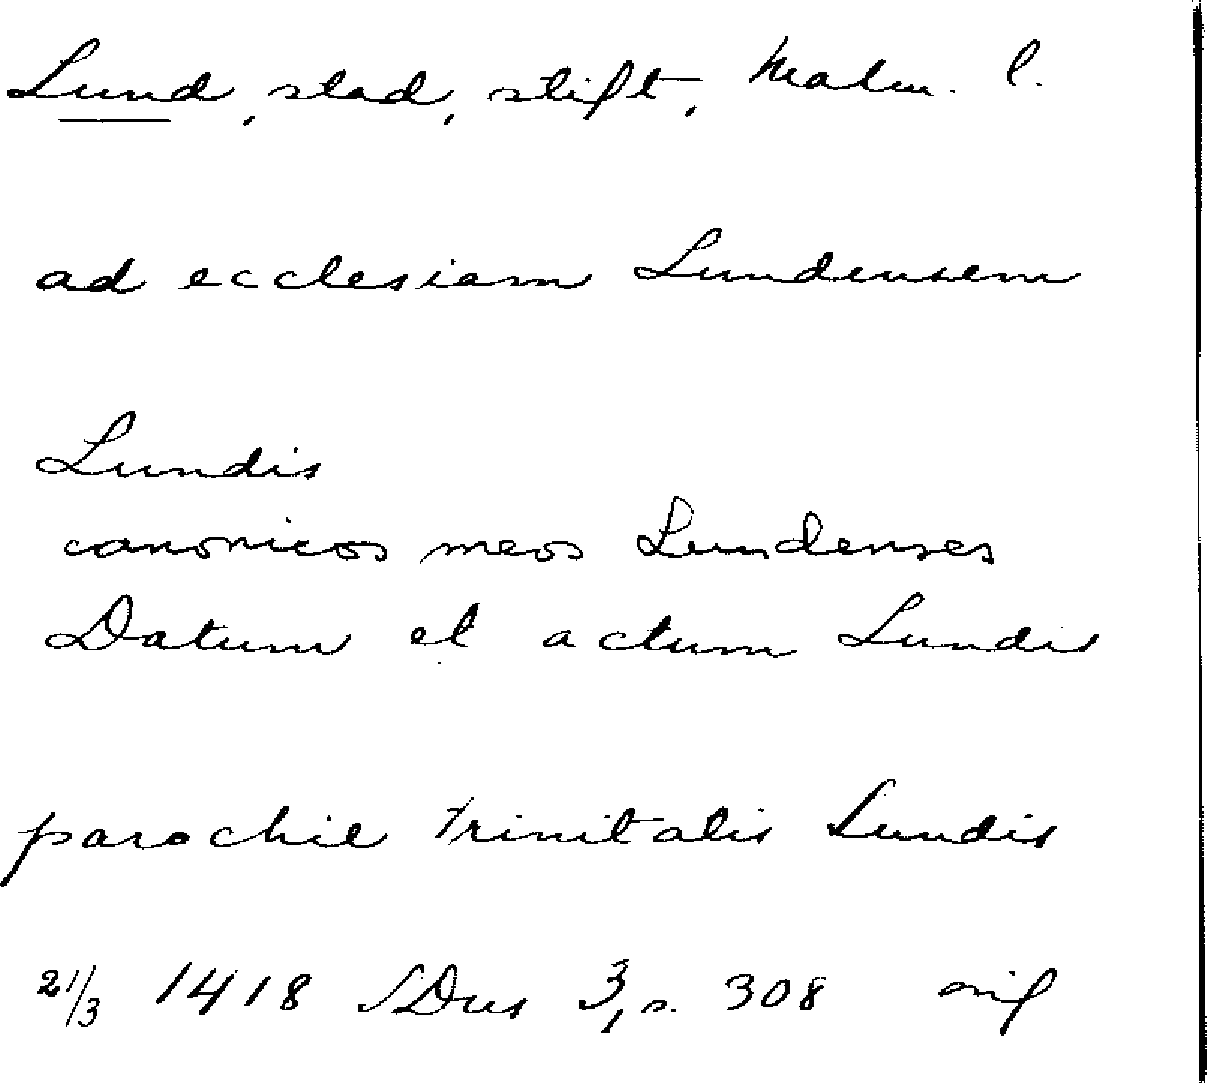 Lund, stad, stift, Malm. l.
ad ecclesiam Lundensem
Lundis
canonicos meos Lundenses
Datum et actum Lundis
parochie trinitatis Lundis
21/3 1418 SDns 3, s. 308 orig